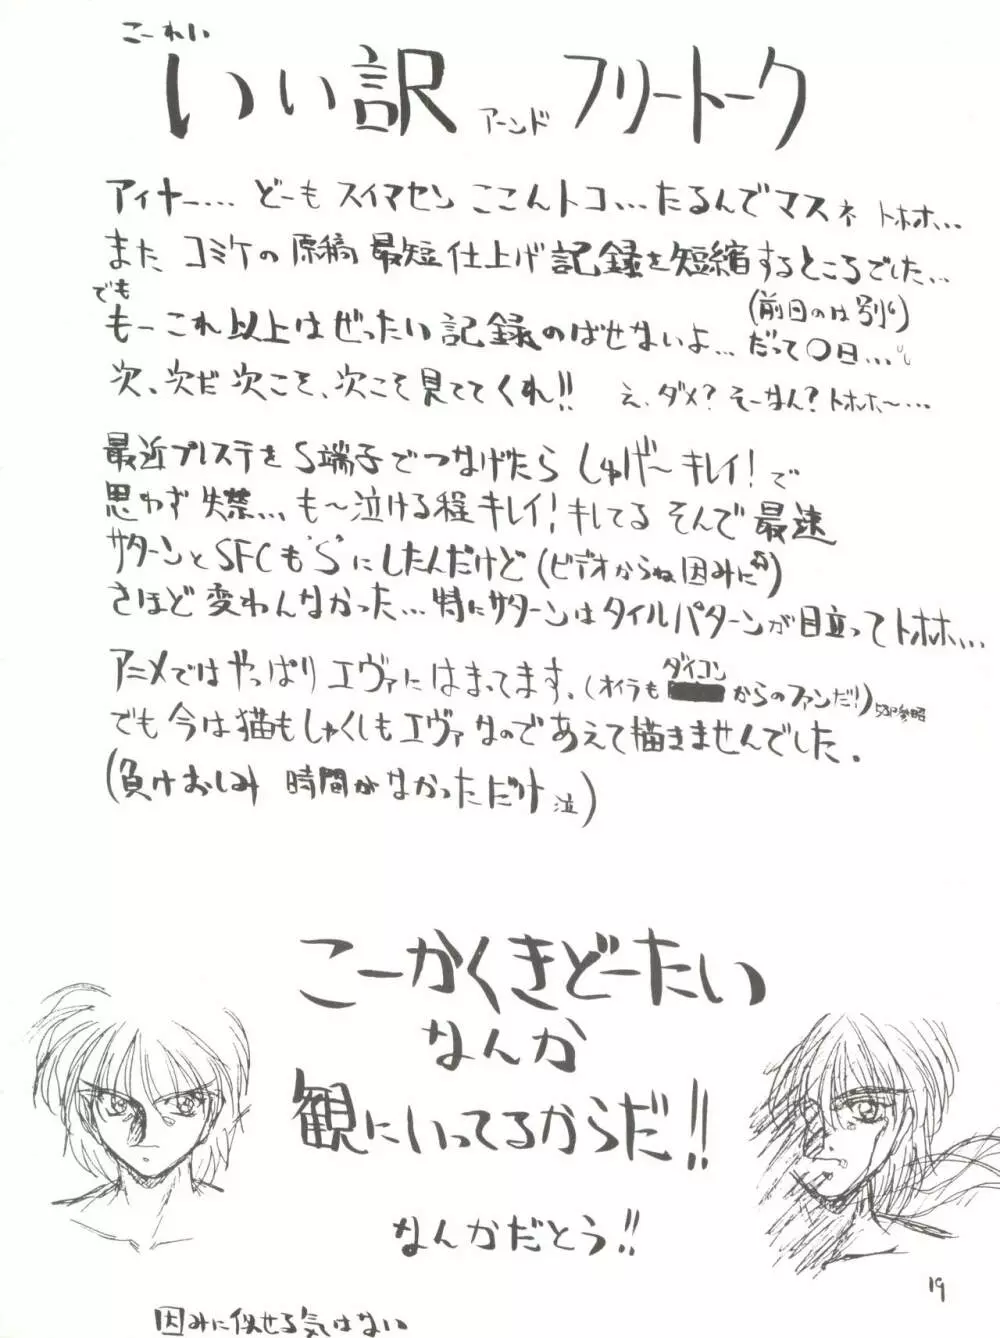 こーれい
いい訳 アーンド フリートーク
アイヤー… どーも スイマセン ここんトコ… たるんでマスネ トホホ…
また コミケの 原稿 最短 仕上げ 記録を 短縮するところでした…
でも
(前日のは別り)
もーこれ以上は ぜったい 記録のばせないよ… だって〇日…
次、次だ 次こそ、次こそ 見ててくれ!! え、ダメ? そーなん? トホホ〜…
最近プレステを S端子でつなげたら しゅげ〜 キレイ! で
思わず 失禁… も〜泣ける程 キレイ! キレてる そんで 最速
サターンと SFCも"S"にしたんだけど (ビデオからね 因みに)
さほど 変わんなかった… 特にサターンはタイルパターンが目立って トホホ…
アニメでは やっぱり エヴァに はまってます。(オイラも ダイコン からのファンだ!) 53P参照
でも 今は 猫も しゃくしも エヴァ なので あえて 描きませんでした。
(負けおしみ 時間がなかっただけ 泣)
こーかくきどーたい
なんか
観にいってるからだ!!
なんかだとう!!
19
因みに 似せる気はない